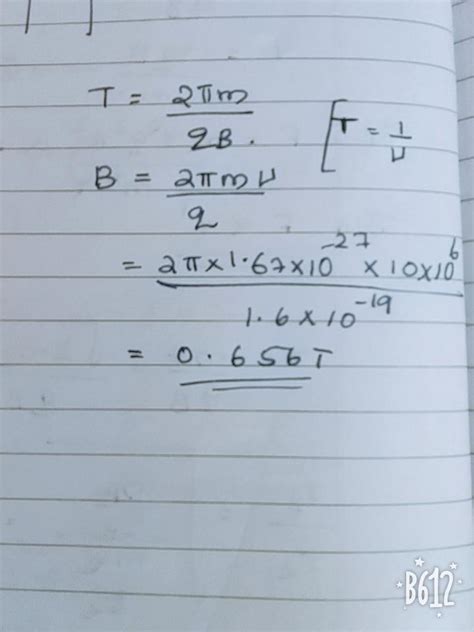 T = 2πm / qB.   [T = 1/ν
B = 2πmν / q
= 2π×1.67×10^-27 × 10×10^6 / 1.6×10^-19
= 0.656T
B612